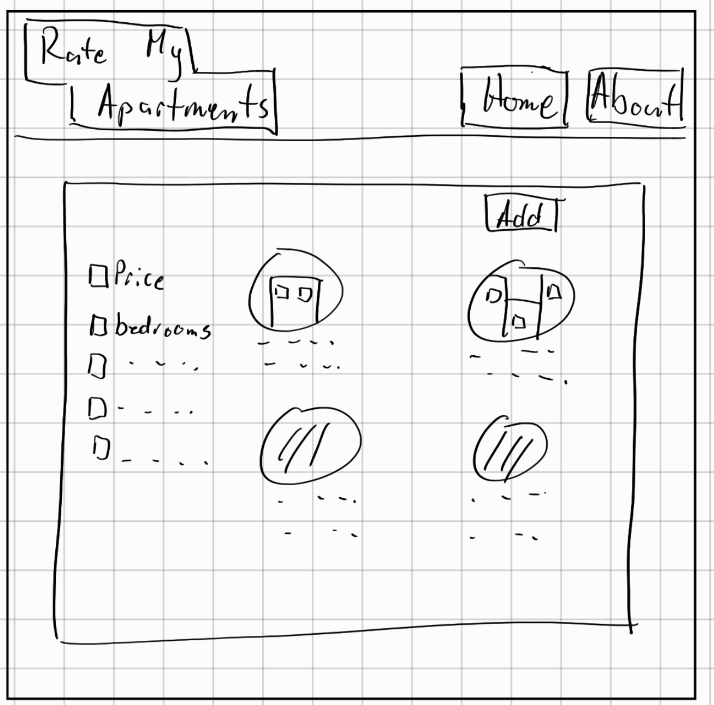 Rate My
Apartments
Home
About
Add
Price
bedrooms